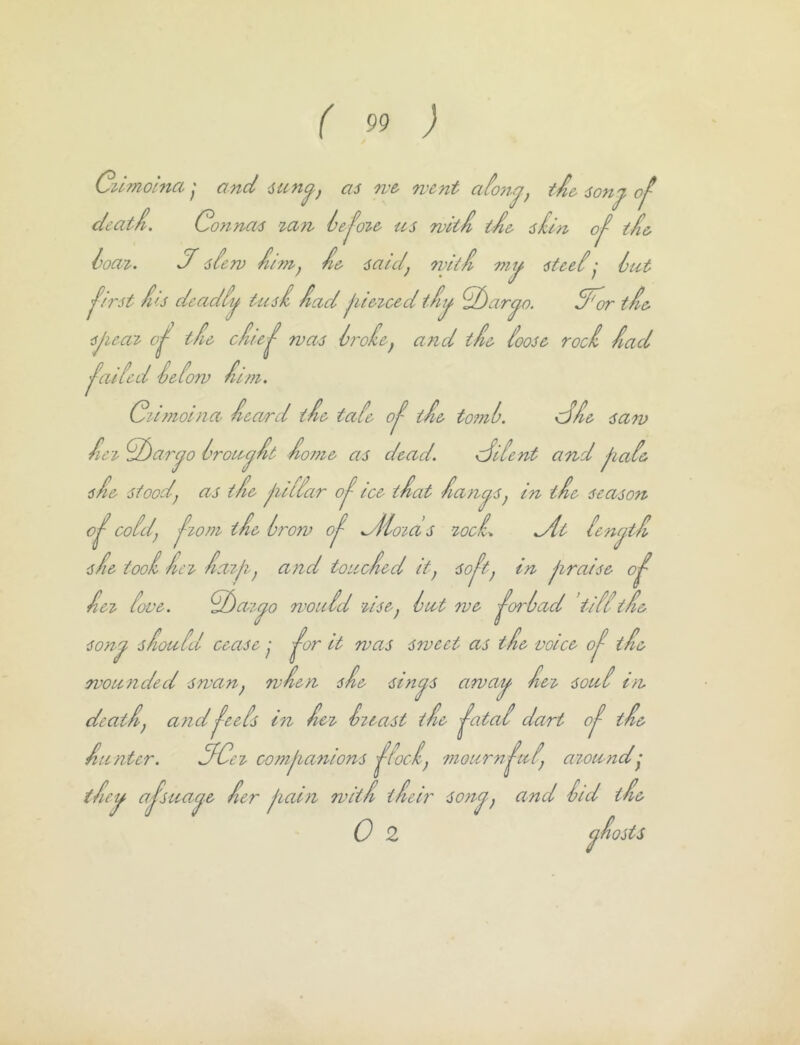 ( 99 )
Crimoina; and sung, as we went along, the song of
death. Connas ran before us with the skin of the
boar. I slew him, he said, with my steel; but
first his deadly tusk had pierced thy Dargo. For the
spear of the chief was broke, and the loose rock had
failed below him.
Crimoina heard the tale of the tomb. She saw
her Dargo brought home as dead. Silent and pale
she stood, as the pillar of ice that hangs, in the season
of cold, from the brow of Mora's rock. At length
she took her harp, and touched it, soft, in praise of
her love. Dargo would rise, but we forbad 'till the
song should cease; for it was sweet as the voice of the
wounded swan, when she sings away her soul in
death, and feels in her breast the fatal dart of the
hunter. Her companions flock, mournful, around;
they aſsuage her pain with their song, and bid the
O 2 ghosts